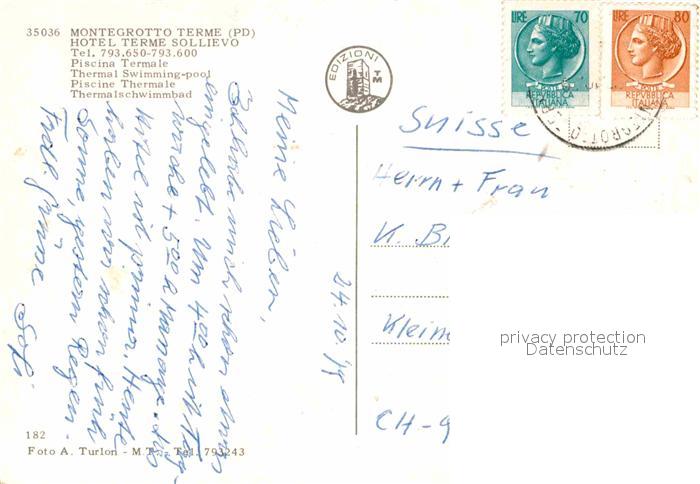 35036 MONTEGROTTO TERME (PD)
HOTEL TERME SOLLIEVO
Tel. 793.650-793.600
Piscina Termale
Thermal Swimming-pool
Piscine Thermale
Thermalschwimmbad
EDIZIONI
TM
LIRE 70
POSTE
REPVBBLICA
ITALIANA
LIRE 80
POSTE
REPVBBLICA
ITALIANA
Meine Lieben,
Ich habe mich schon etwas
eingelebt. Um 4 00 h ist Tag-
wache + 5 00 h Massage. Das
Hotel ist prima. Heute
haben wir schon
Sonne, gestern Regen.
Grüsse
24.10.78
Suisse
Herrn + Frau
K. B
Klein
CH-9
privacy protection
Datenschutz
182
Foto A. Turlon - M.T. - Tel. 793243